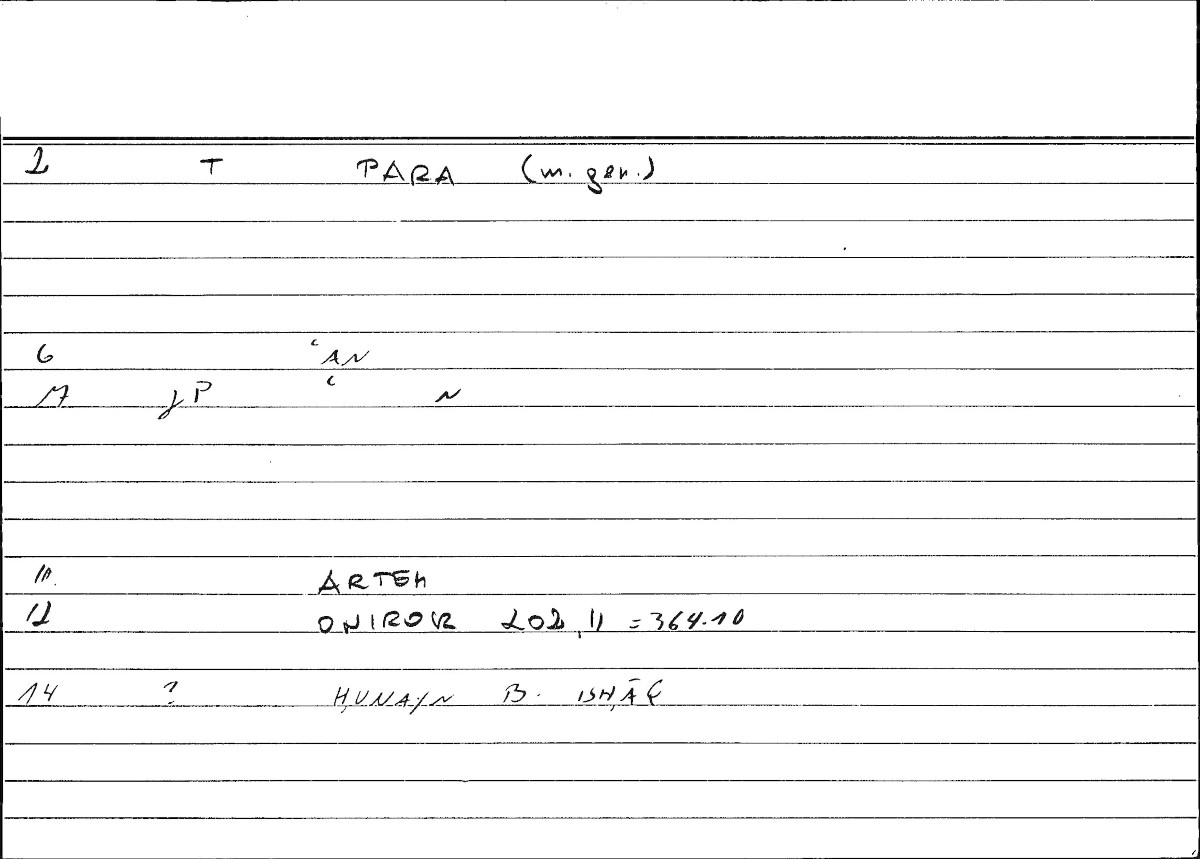 2 T PARA (m. gen.)
6 ʿAN
ʿ N
11 ARTEM
12 ONIROK 202,11 = 364.10
14 ? ḤUNAYN B. ISḤĀQ